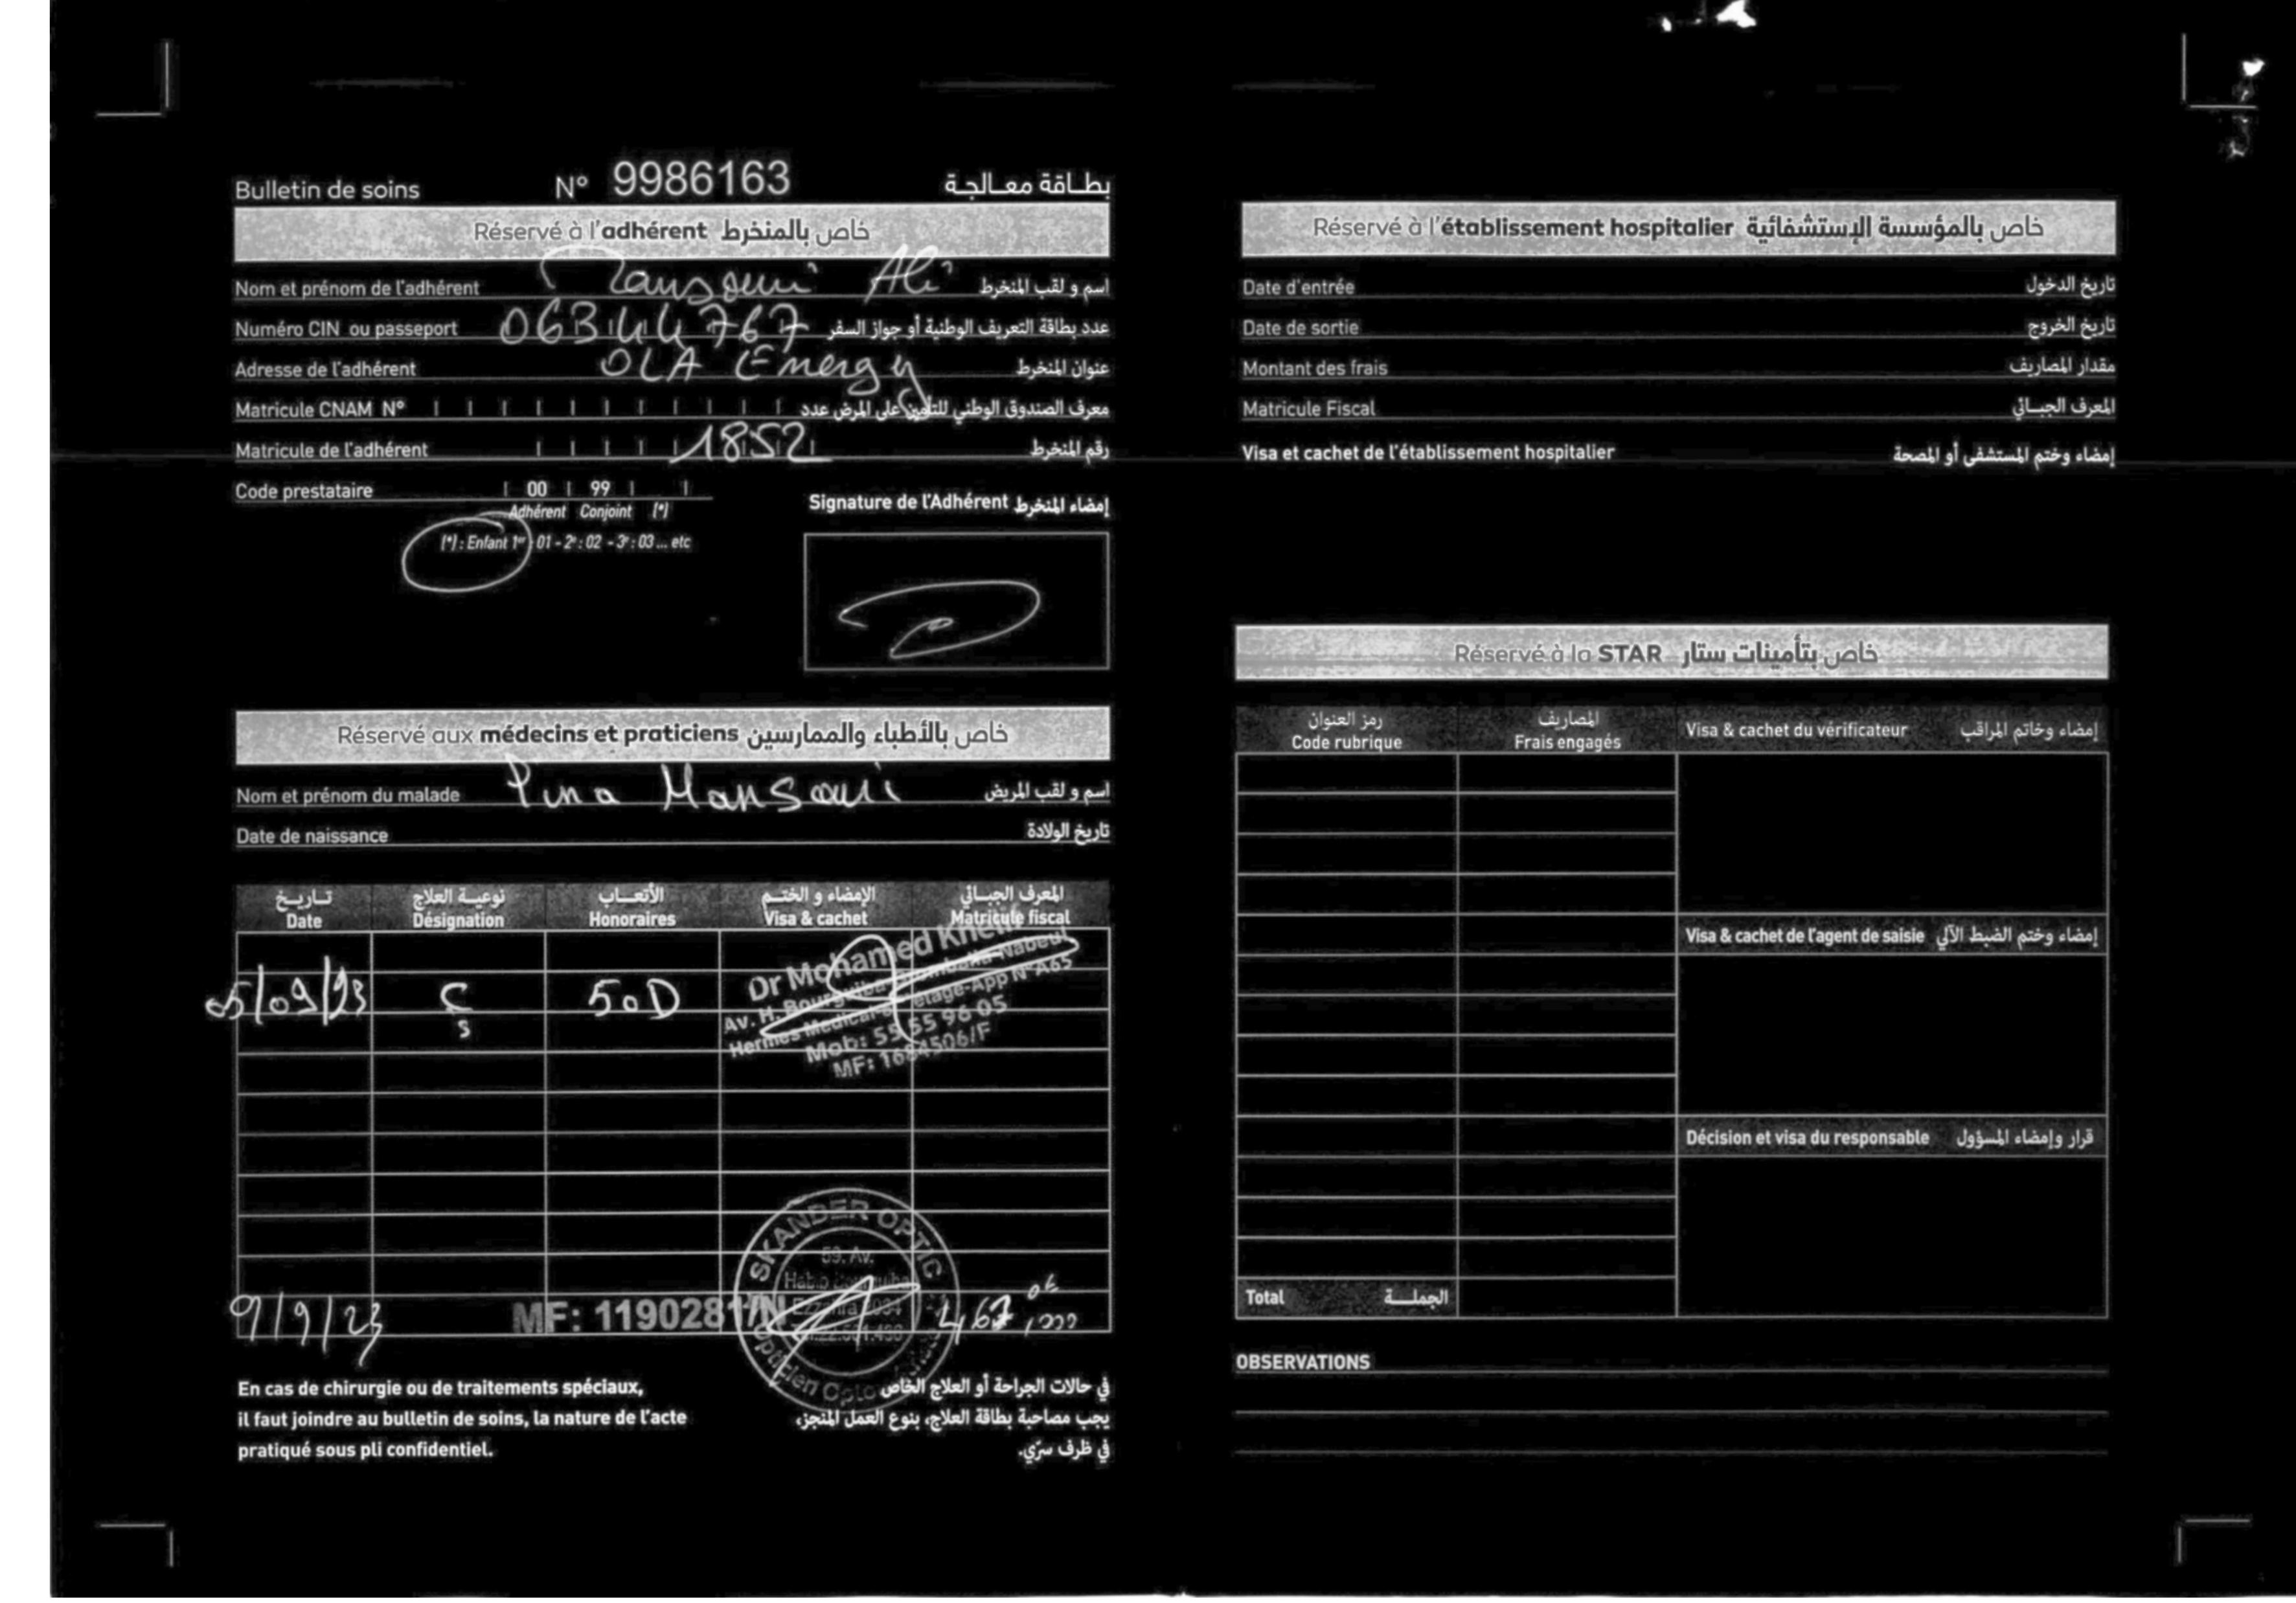 Bulletin de soins N° 9986163 بطاقة معالجة
Réservé à l'adhérent خاص بالمنخرط
Nom et prénom de l'adhérent Mansouri Ali اسم و لقب المنخرط
Numéro CIN ou passeport 06344767 عدد بطاقة التعريف الوطنية أو جواز السفر
Adresse de l'adhérent OLA Energy عنوان المنخرط
Matricule CNAM N° معرف الصندوق الوطني للتأمين على المرض عدد
Matricule de l'adhérent 1852 رقم المنخرط
Code prestataire 00 99
Adhérent Conjoint (*)
(*) : Enfant 1er : 01 - 2e : 02 - 3e : 03 ... etc
Signature de l'Adhérent إمضاء المنخرط
Réservé aux médecins et praticiens خاص بالأطباء والممارسين
Nom et prénom du malade Mansouri اسم و لقب المريض
Date de naissance تاريخ الولادة
تاريخ نوعية العلاج الأتعاب الإمضاء و الختم المعرف الجبائي
Date Désignation Honoraires Visa & cachet Matricule fiscal
05/09/23 C 50D
s
Dr Mohamed
Av. H. Bourguiba Nabeul
Hermes Medical étage-App N°A65
Mob: 55 55 96 05
MF: 1684506/F
SKANDER OPTIC
59. Av.
Habib Bourguiba
Opticien
9/9/23 MF: 1190281/N 467,000
En cas de chirurgie ou de traitements spéciaux,
il faut joindre au bulletin de soins, la nature de l'acte
pratiqué sous pli confidentiel.
في حالات الجراحة أو العلاج الخاص
يجب مصاحبة بطاقة العلاج، بنوع العمل المنجز،
في ظرف سرّي.
Réservé à l'établissement hospitalier خاص بالمؤسسة الإستشفائية
Date d'entrée تاريخ الدخول
Date de sortie تاريخ الخروج
Montant des frais مقدار المصاريف
Matricule Fiscal المعرف الجبائي
Visa et cachet de l'établissement hospitalier إمضاء وختم المستشفى أو المصحة
Réservé à la STAR خاص بتأمينات ستار
رمز العنوان المصاريف
Code rubrique Frais engagés Visa & cachet du vérificateur إمضاء وخاتم المراقب
Visa & cachet de l'agent de saisie إمضاء وختم الضبط الآلي
Décision et visa du responsable قرار وإمضاء المسؤول
Total الجملة
OBSERVATIONS